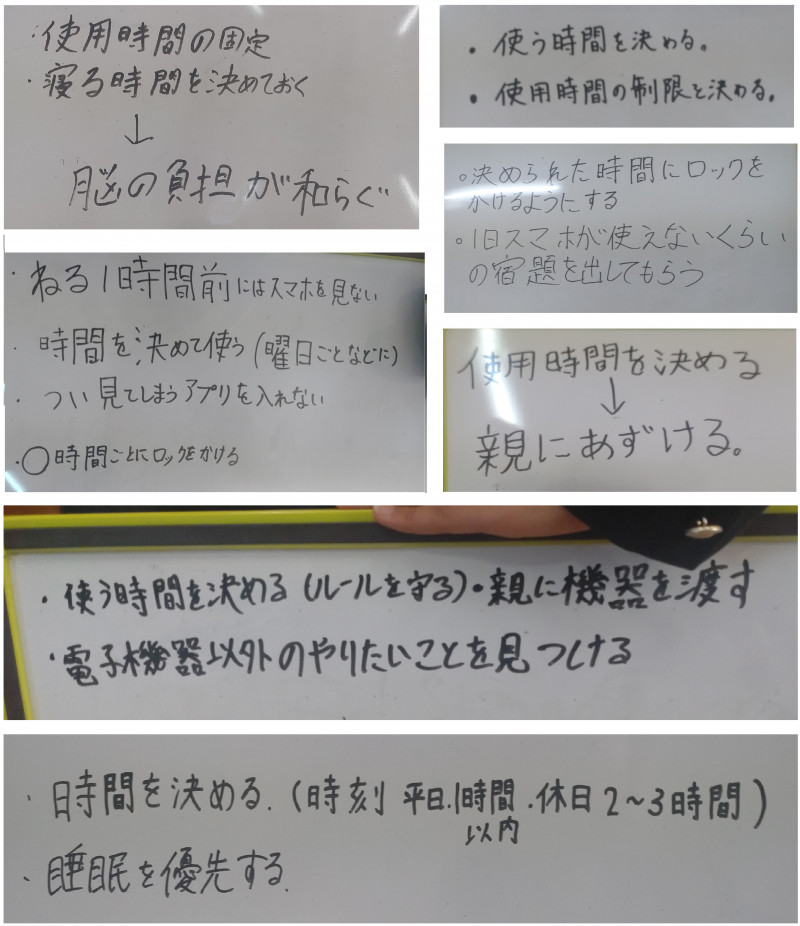 ・使用時間の固定
・寝る時間を決めておく
↓
脳の負担が和らぐ
・使う時間を決める。
・使用時間の制限と決める。
○決められた時間にロックを
かけるようにする
○1日スマホが使えないくらい
の宿題を出してもらう
・ねる1時間前にはスマホを見ない
・時間を決めて使う(曜日ごとなどに)
・つい見てしまうアプリを入れない
・○時間ごとにロックをかける
使用時間を決める
↓
親にあずける。
・使う時間を決める(ルールを守る)・親に機器を渡す
・電子機器以外のやりたいことを見つける
・時間を決める.(時刻 平日.1時間.休日2~3時間)
以内
・睡眠を優先する.